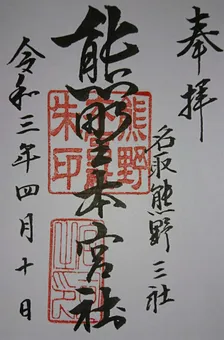 奉拝
名取熊野三社
熊野本宮社
令和三年四月十日
熊野
朱印